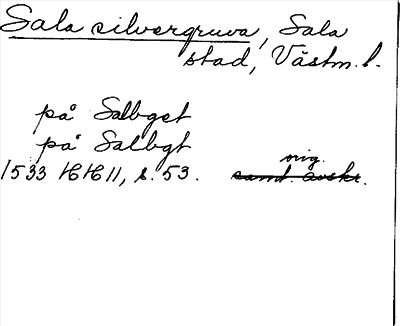 Sala silvergruva, Sala
stad, Västm. l.
på Salbget
på Salbgt
orig.
1533 HH 11, s. 53. samt. avskr.